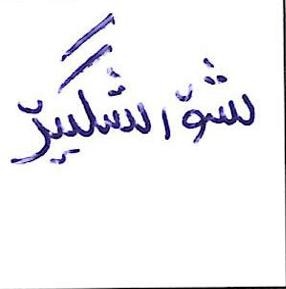 شۆڕشگێڕ